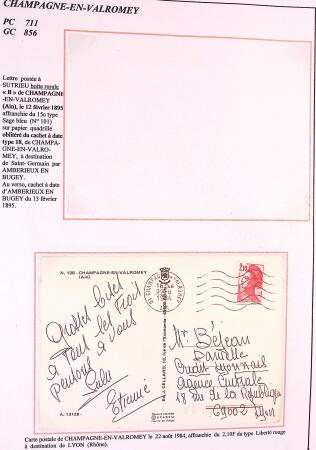 CHAMPAGNE-EN-VALROMEY
PC 711
GC 856
Lettre postée à
SUTRIEU boîte rurale
« B » de CHAMPAGNE
-EN-VALROMEY
(Ain), le 12 février 1895
affranchie du 15c type
Sage bleu (N° 101)
sur papier quadrillé
oblitéré du cachet à date
type 18, de CHAMPA-
GNE-EN-VALRO-
MEY, à destination
de Saint- Germain par
AMBERIEUX EN
BUGEY.
Au verso, cachet à date
d'AMBERIEUX EN
BUGEY du 13 février
1895.
N. 128 - CHAMPAGNE-EN-VALROMEY
(Ain)
Grosses bises
à tous les trois
pensons à vous
Etienne
A. 13128
CELLARD
2,10
Mr Béjean
Danielle
Crédit Lyonnais
Agence Centrale
18 rue de la République
69002 Lyon
Carte postale de CHAMPAGNE-EN-VALROMEY le 22 août 1984, affranchie du 2,10F du type Liberté rouge
à destination de LYON (Rhône).